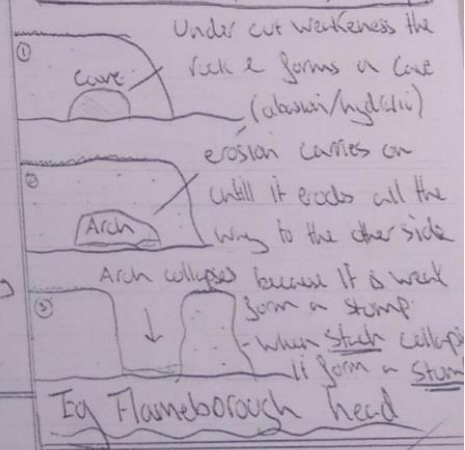 Under cut weakeness the
①
Cave
rock & forms a Cave
(abrasion/hydralic)
erosion carries on
②
untill it erodes all the
Arch
way to the other side
Arch collapses because it is weak
③
form a stump
- When Stack collaps
it form a Stum
Eg Flameborough head